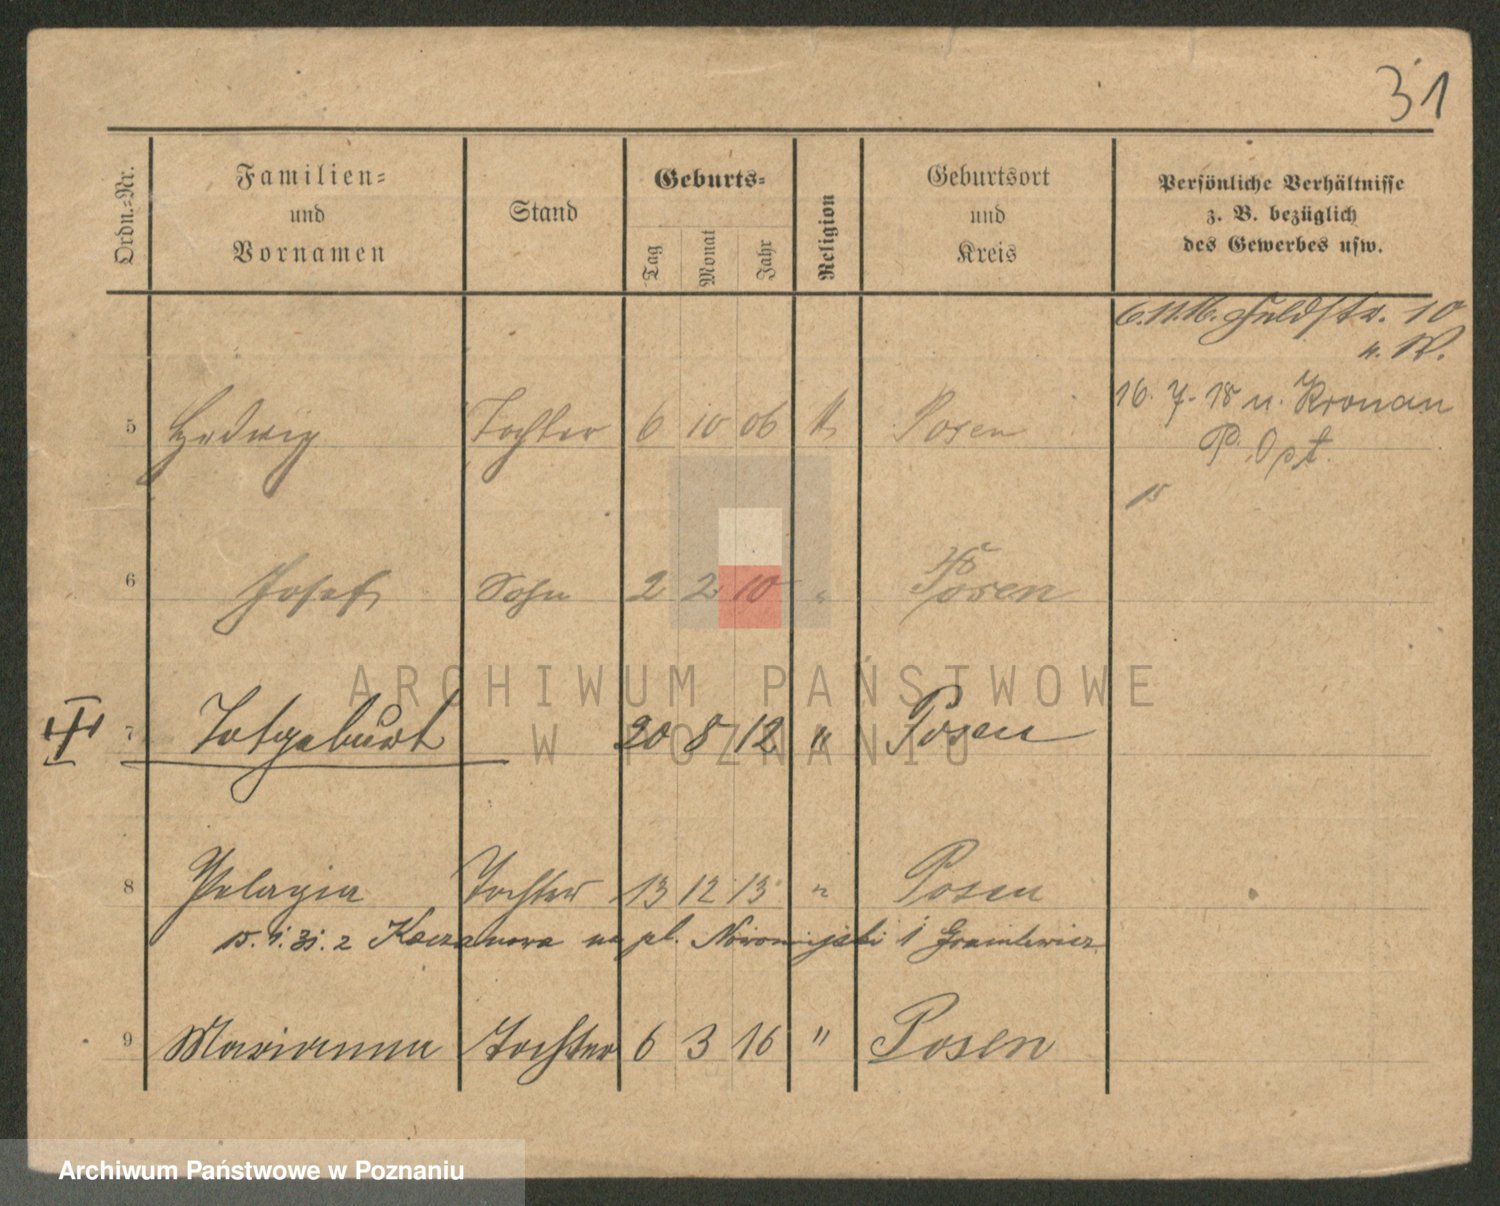 31
Ordn.-Nr.
Familien-
und
Vornamen
Stand
Geburts-
Tag
Monat
Jahr
Religion
Geburtsort
und
Kreis
Persönliche Verhältnisse
z. B. bezüglich
des Gewerbes usw.
6.11.16. 10
n. W.
16. 7. 18 n. Kronau
P. Opt.
15
5 Hedwig Tochter 6 10 06 k Posen
6 Josef Sohn 2 2 10 " Posen
7 Totgeburt 20 8 12 " Posen
8 Pelagia Tochter 13 12 13 " Posen
15. 31. z na pl. Nowomiejski 1
9 Marianna Tochter 6 3 16 " Posen
ARCHIWUM PAŃSTWOWE
W POZNANIU
Archiwum Państwowe w Poznaniu